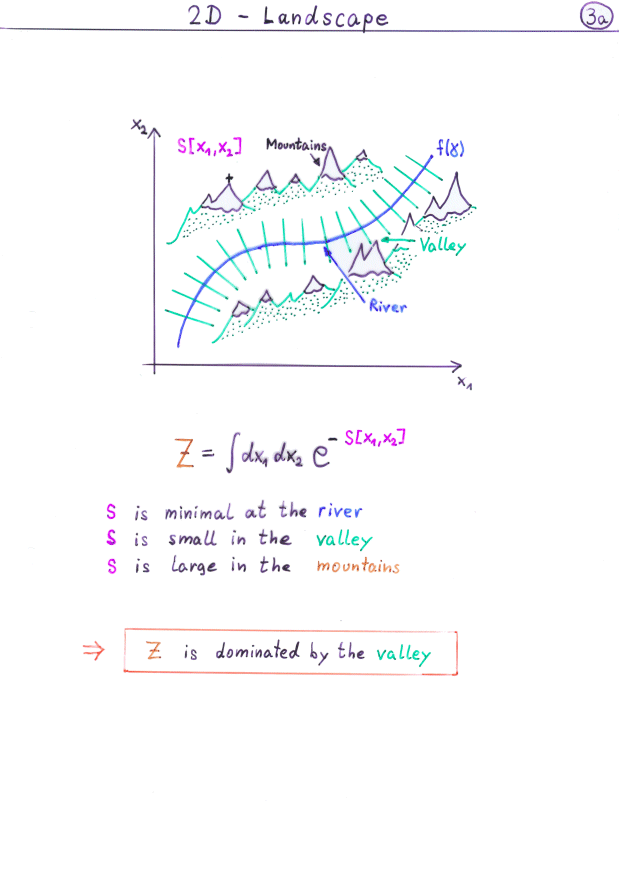 2D - Landscape
3a
x₂
S[x₁,x₂]
Mountains
f(γ)
Valley
River
x₁
Z = ∫dx₁ dx₂ e^{-S[x₁,x₂]}
S is minimal at the river
S is small in the valley
S is large in the mountains
⇒ Z is dominated by the valley